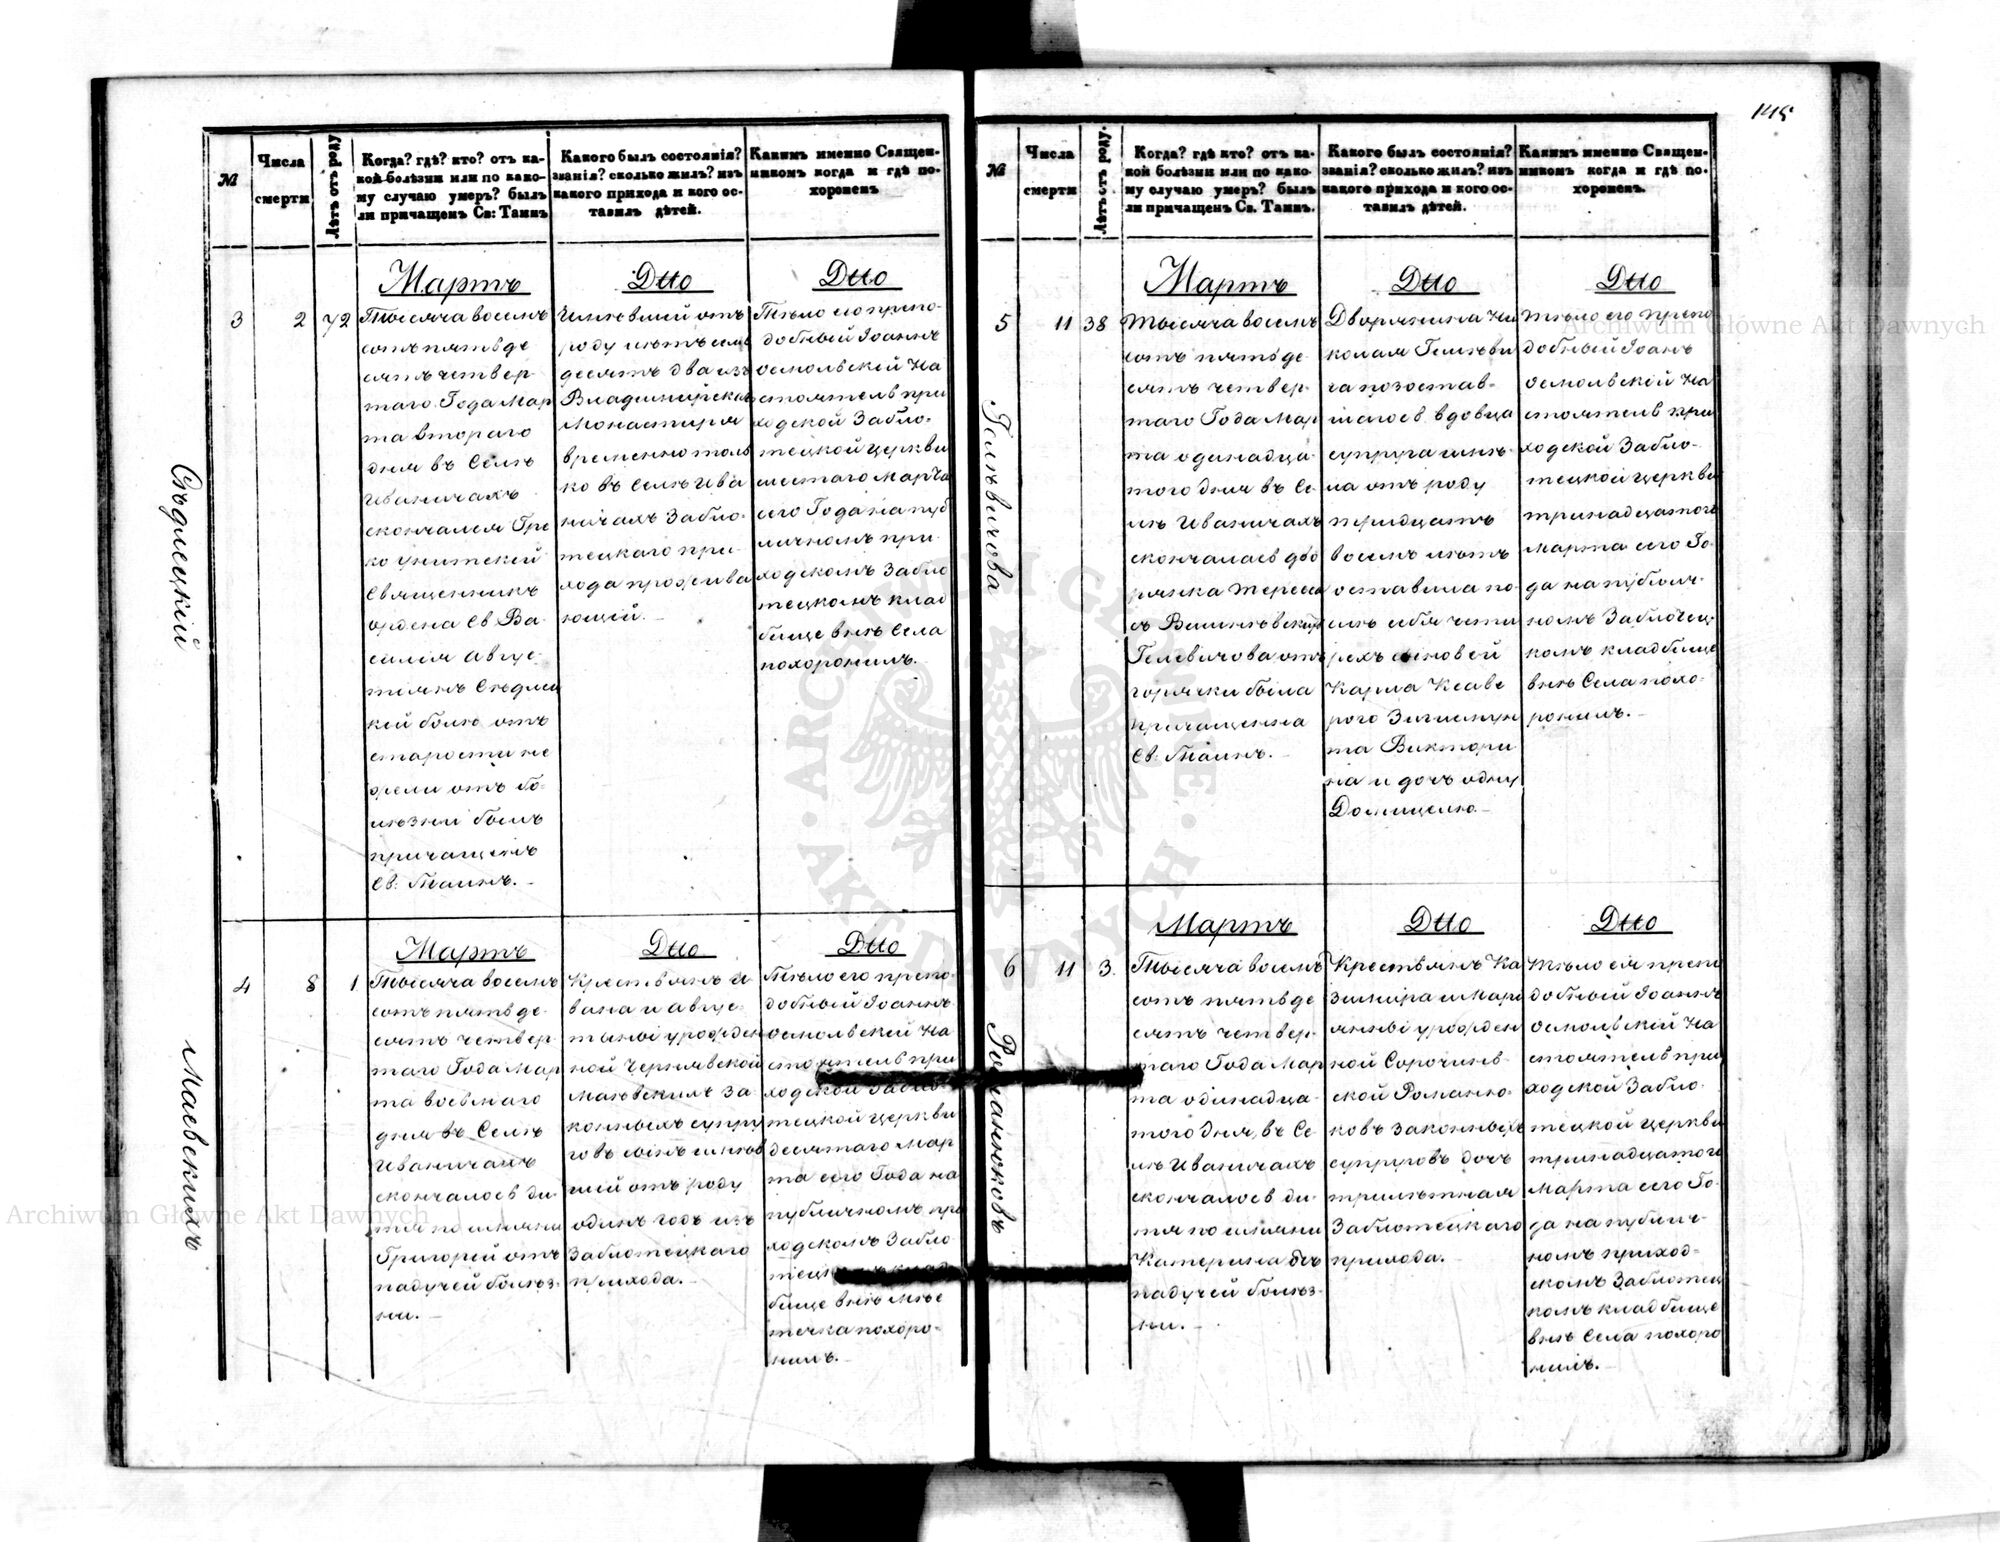 145
№
Числа
смерти
Лѣтъ отъ роду
Когда? гдѣ? кто? отъ ка-
кой болѣзни или по како-
му случаю умеръ? былъ
ли причащенъ Св: Таинъ
Какого былъ состоянія?
званія? сколько жилъ? изъ
какого прихода и кого ос-
тавилъ дѣтей.
Какимъ именно Священ-
никомъ когда и гдѣ по-
хороненъ
Сѣдлецкій
3
2
72
Мартъ
Тысяча восемъ
сотъ пятьде
сятъ четвер-
таго Года Мар
та втораго
дня въ Селѣ
Иваничахъ
скончался Гре
ко унитскій
Священникъ
ордена Св Ва-
силія Авгус-
тіянъ Сѣдлец
кій болѣ отъ
старости не
жели отъ бо-
лѣзни былъ
причащенъ
Св: Таинъ.-
Дtto
Имѣвшій отъ
роду лѣтъ семь
десятъ два изъ
Владимірскаго
Монастыря
временно толь
ко въ Селѣ Ива
ничахъ Забло-
тецкаго при-
хода прожива
ющій.-
Дtto
Тѣло его препо-
добный Іоаннъ
Осмольскій На
стоятель при
ходской Забло-
тецкой церкви
шестаго Марта
сего Года на пуб
личномъ при-
ходскомъ Забло
тецкомъ клад
бище внѣ Села
похоронилъ.
Маевскихъ
4
8
1
Мартъ
Тысяча восемъ
сотъ пятьде-
сятъ четвер-
таго Года Мар
та восьмаго
дня въ Селѣ
Иваничахъ
скончалось ди-
тя по имяни
Григорій отъ
падучей болѣз-
ни.-
Дtto
Крестьянъ И
вана и Авгус-
тыны урожден
ной Чернявской
Маевскихъ за
конныхъ супру
говъ сынъ имѣв
шій отъ роду
одинъ годъ изъ
Заблотецкаго
прихода.-
Дtto
Тѣло его препо-
добный Іоаннъ
Осмольскій На
стоятель при
ходской Забло-
тецкой церкви
десятаго Мар
та сего Года на
публичномъ при
ходскомъ Забло
бище внѣ мѣс
течка похоро-
нилъ.-
№
Числа
смерти
Лѣтъ отъ роду.
Когда? гдѣ кто? отъ ка-
кой болѣзни или по како-
му случаю умеръ? былъ
ли причащенъ Св. Таинъ.
Какого былъ состоянія?
званія? сколько жилъ? изъ
какого прихода и кого ос-
тавилъ дѣтей.
Какимъ именно Священ-
никомъ когда и гдѣ по-
хороненъ.
Гелѣвичова
5
11
38
Мартъ
Тысяча восемъ
сотъ пятьде-
сятъ четвер-
таго Года Мар
та одинадца-
того дня въ Се-
лѣ Иваничахъ
скончалась дво
рянка Тереса
Гелевичова отъ
горячки была
причащенна
Св: Таинъ.-
Дtto
Дворянина Ни
колая Гелѣви
ча позостав-
шагось вдовца
супруга имѣ-
ла отъ роду
тридцать
восемъ лѣтъ
оставила по-
слѣ себя четы
рехъ сыновей
Карла Ксаве
рого Зигмун
та Виктори
на и дочь одну
Домицелю.-
Дtto
Тѣло его препо
добный Іоанъ
Осмольскій На
стоятель при
ходской Забло-
тецкой церкви
тринадцатого
Марта сего Го-
да на публич-
номъ Заблотец-
комъ кладбище
внѣ Села похо-
ронилъ.-
Романюковъ
6
11
3.
Мартъ
Тысяча восемъ
сотъ пятьде
сятъ четвер-
таго Года Мар
та одинадца-
того дня, въ Се-
лѣ Иваничахъ
скончалось ди-
тя по имяни
Катерина отъ
падучей болѣз-
ни.-
Дtto
Крестьянъ Ка
зимира и Мары
янны урожден
ной Сорочинь-
ской Романю-
ковъ законныхъ
супруговъ дочь
трилѣтная
Заблотецкаго
прихода.-
Дtto
Тѣло ея препо
добный Іоаннъ
Осмольскій На
стоятель при
ходской Забло-
тецкой церкви
тринадцатого
Марта сего Го-
да на публич-
номъ приход-
скомъ Заблотец
комъ кладбище
внѣ Села похоро
нилъ.-
Archiwum Główne Akt Dawnych
Archiwum Główne Akt Dawnych